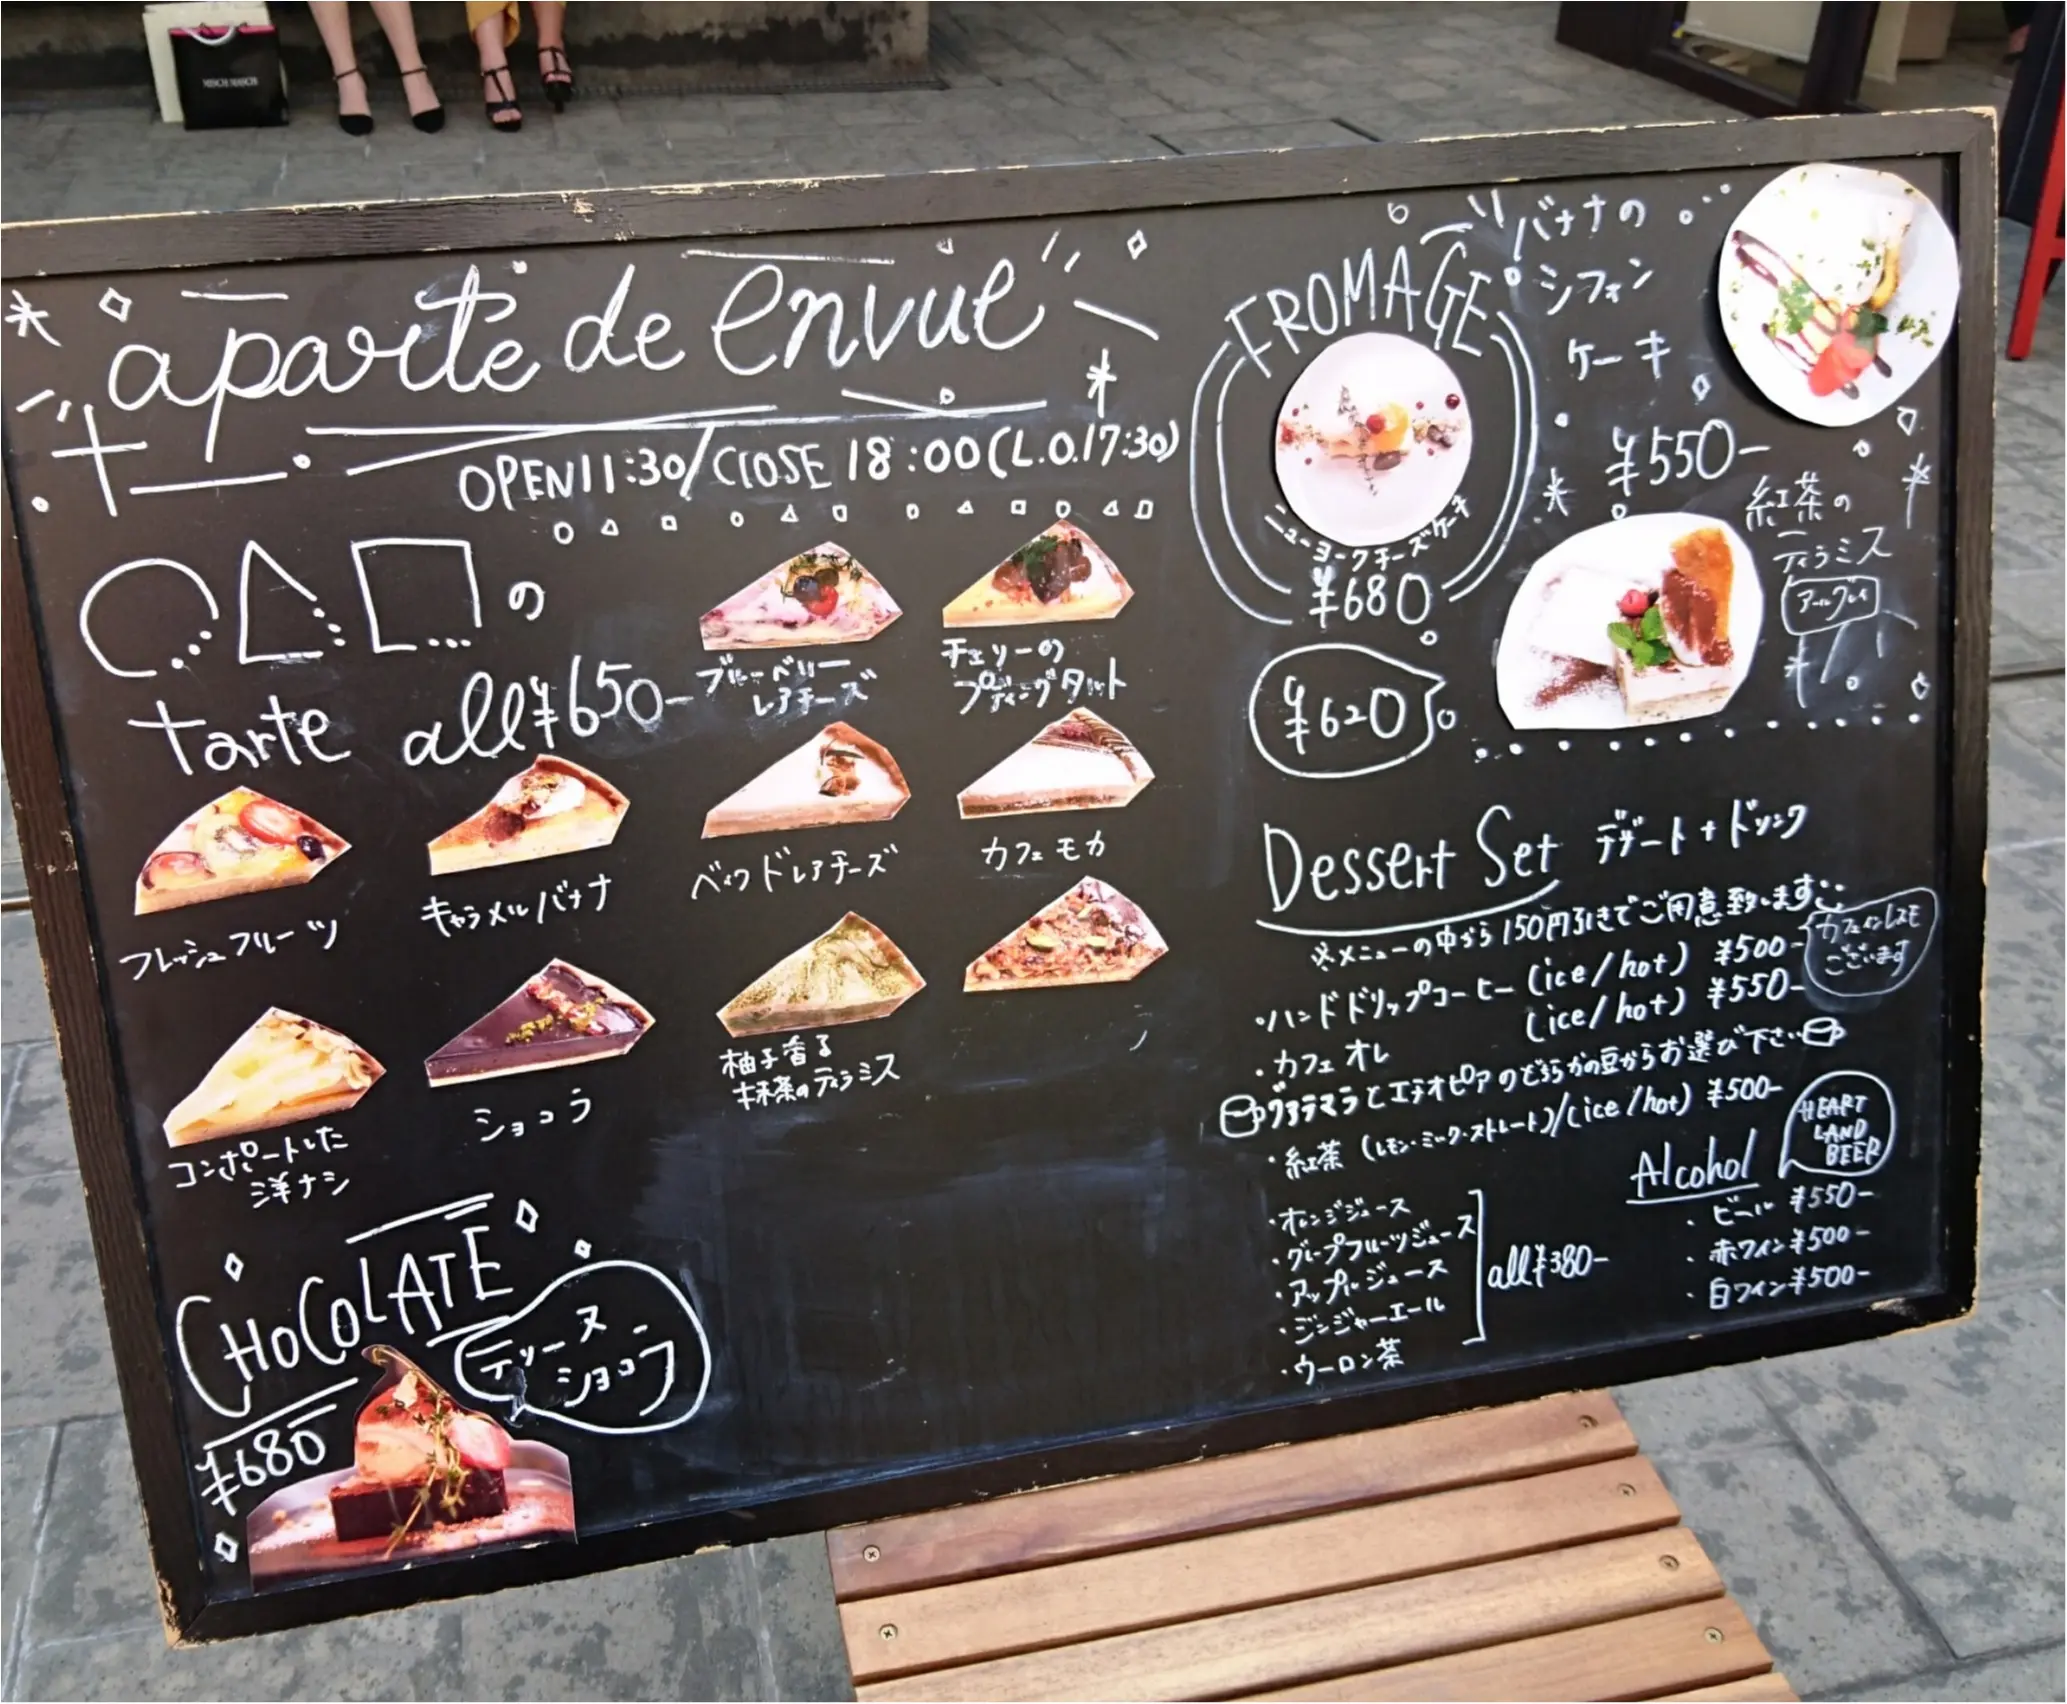 MISCH MASCH
aparte de envue
OPEN 11:30/CLOSE 18:00(L.O.17:30)
○△□の
tarte all¥650-
ブルーベリー
レアチーズ
チェリーの
プディングタルト
フレッシュフルーツ
キャラメルバナナ
ベイクドレアチーズ
カフェモカ
コンポートした
洋ナシ
ショコラ
柚子香る
抹茶のティラミス
CHOCOLATE
¥680
テリーヌ
ショコラ
FROMAGE
ニューヨークチーズケーキ
¥680
バナナの
シフォン
ケーキ
¥550-
紅茶の
ティラミス
アールグレイ
¥620
Dessert Set デザート+ドリンク
※メニューの中から150円引きでご用意致します
カフェインレスモ
ございます
・ハンドドリップコーヒー (ice/hot) ¥500-
・カフェオレ (ice/hot) ¥550-
グァテマラとエチオピアのどちらかの豆からお選び下さい
・紅茶 (レモン・ミルク・ストレート)/(ice/hot) ¥500-
・オレンジジュース
・グレープフルーツジュース
・アップルジュース
・ジンジャーエール
・ウーロン茶
all¥380-
Alcohol
HEART
LAND
BEER
・ビール ¥550-
・赤ワイン¥500-
・白ワイン¥500-